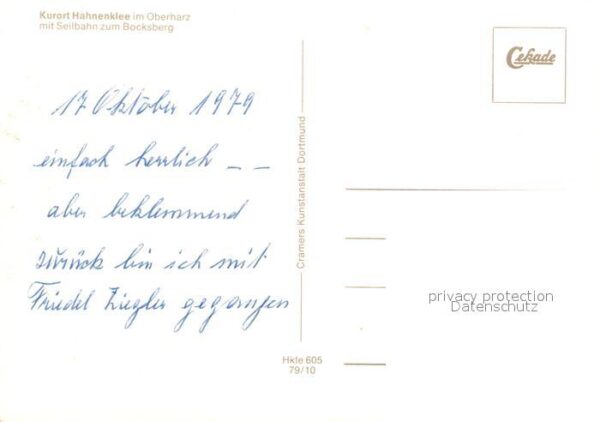 Kurort Hahnenklee im Oberharz
mit Seilbahn zum Bocksberg
Cekade
17 Oktober 1979
einfach herrlich _ _
aber beklemmend
zurück bin ich mit
Friedel Ziegler gegangen
Cramers Kunstanstalt Dortmund
privacy protection
Datenschutz
Hkle 605
79/10